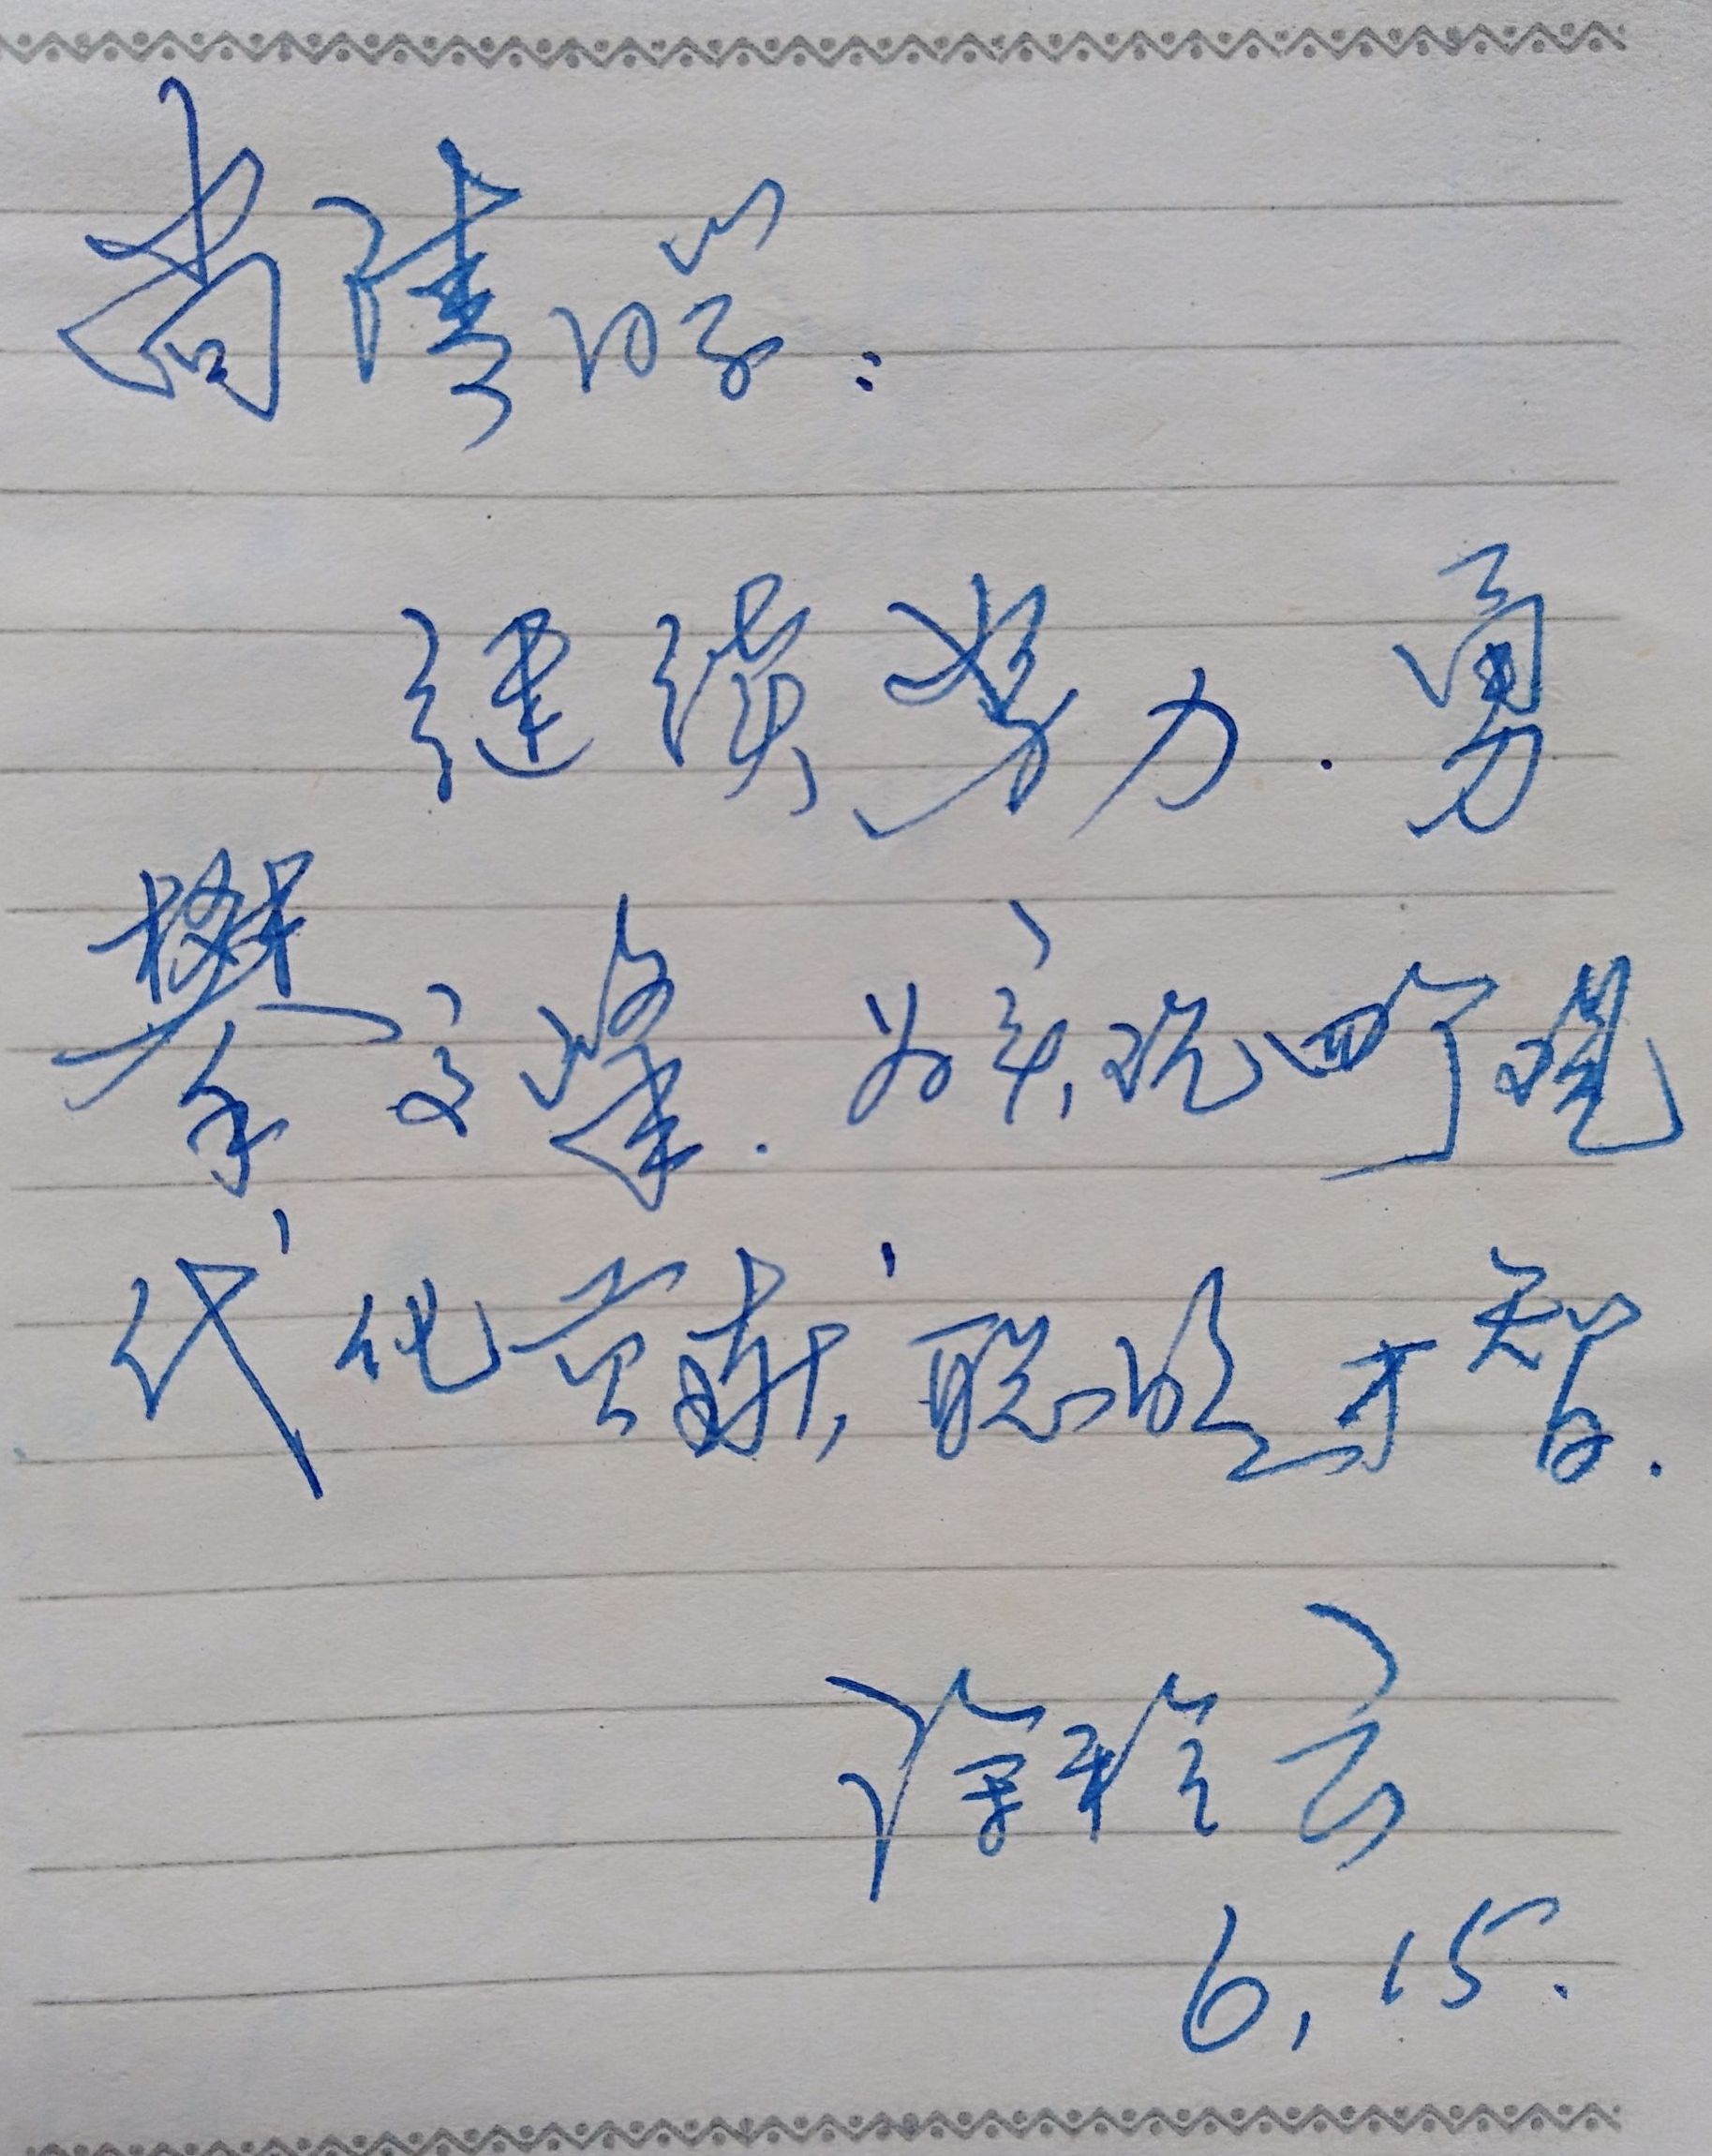 尚陆同学：
继续努力.勇
攀高峰.为实现四个现
代化贡献聪明才智.
涂玲云
6,15.